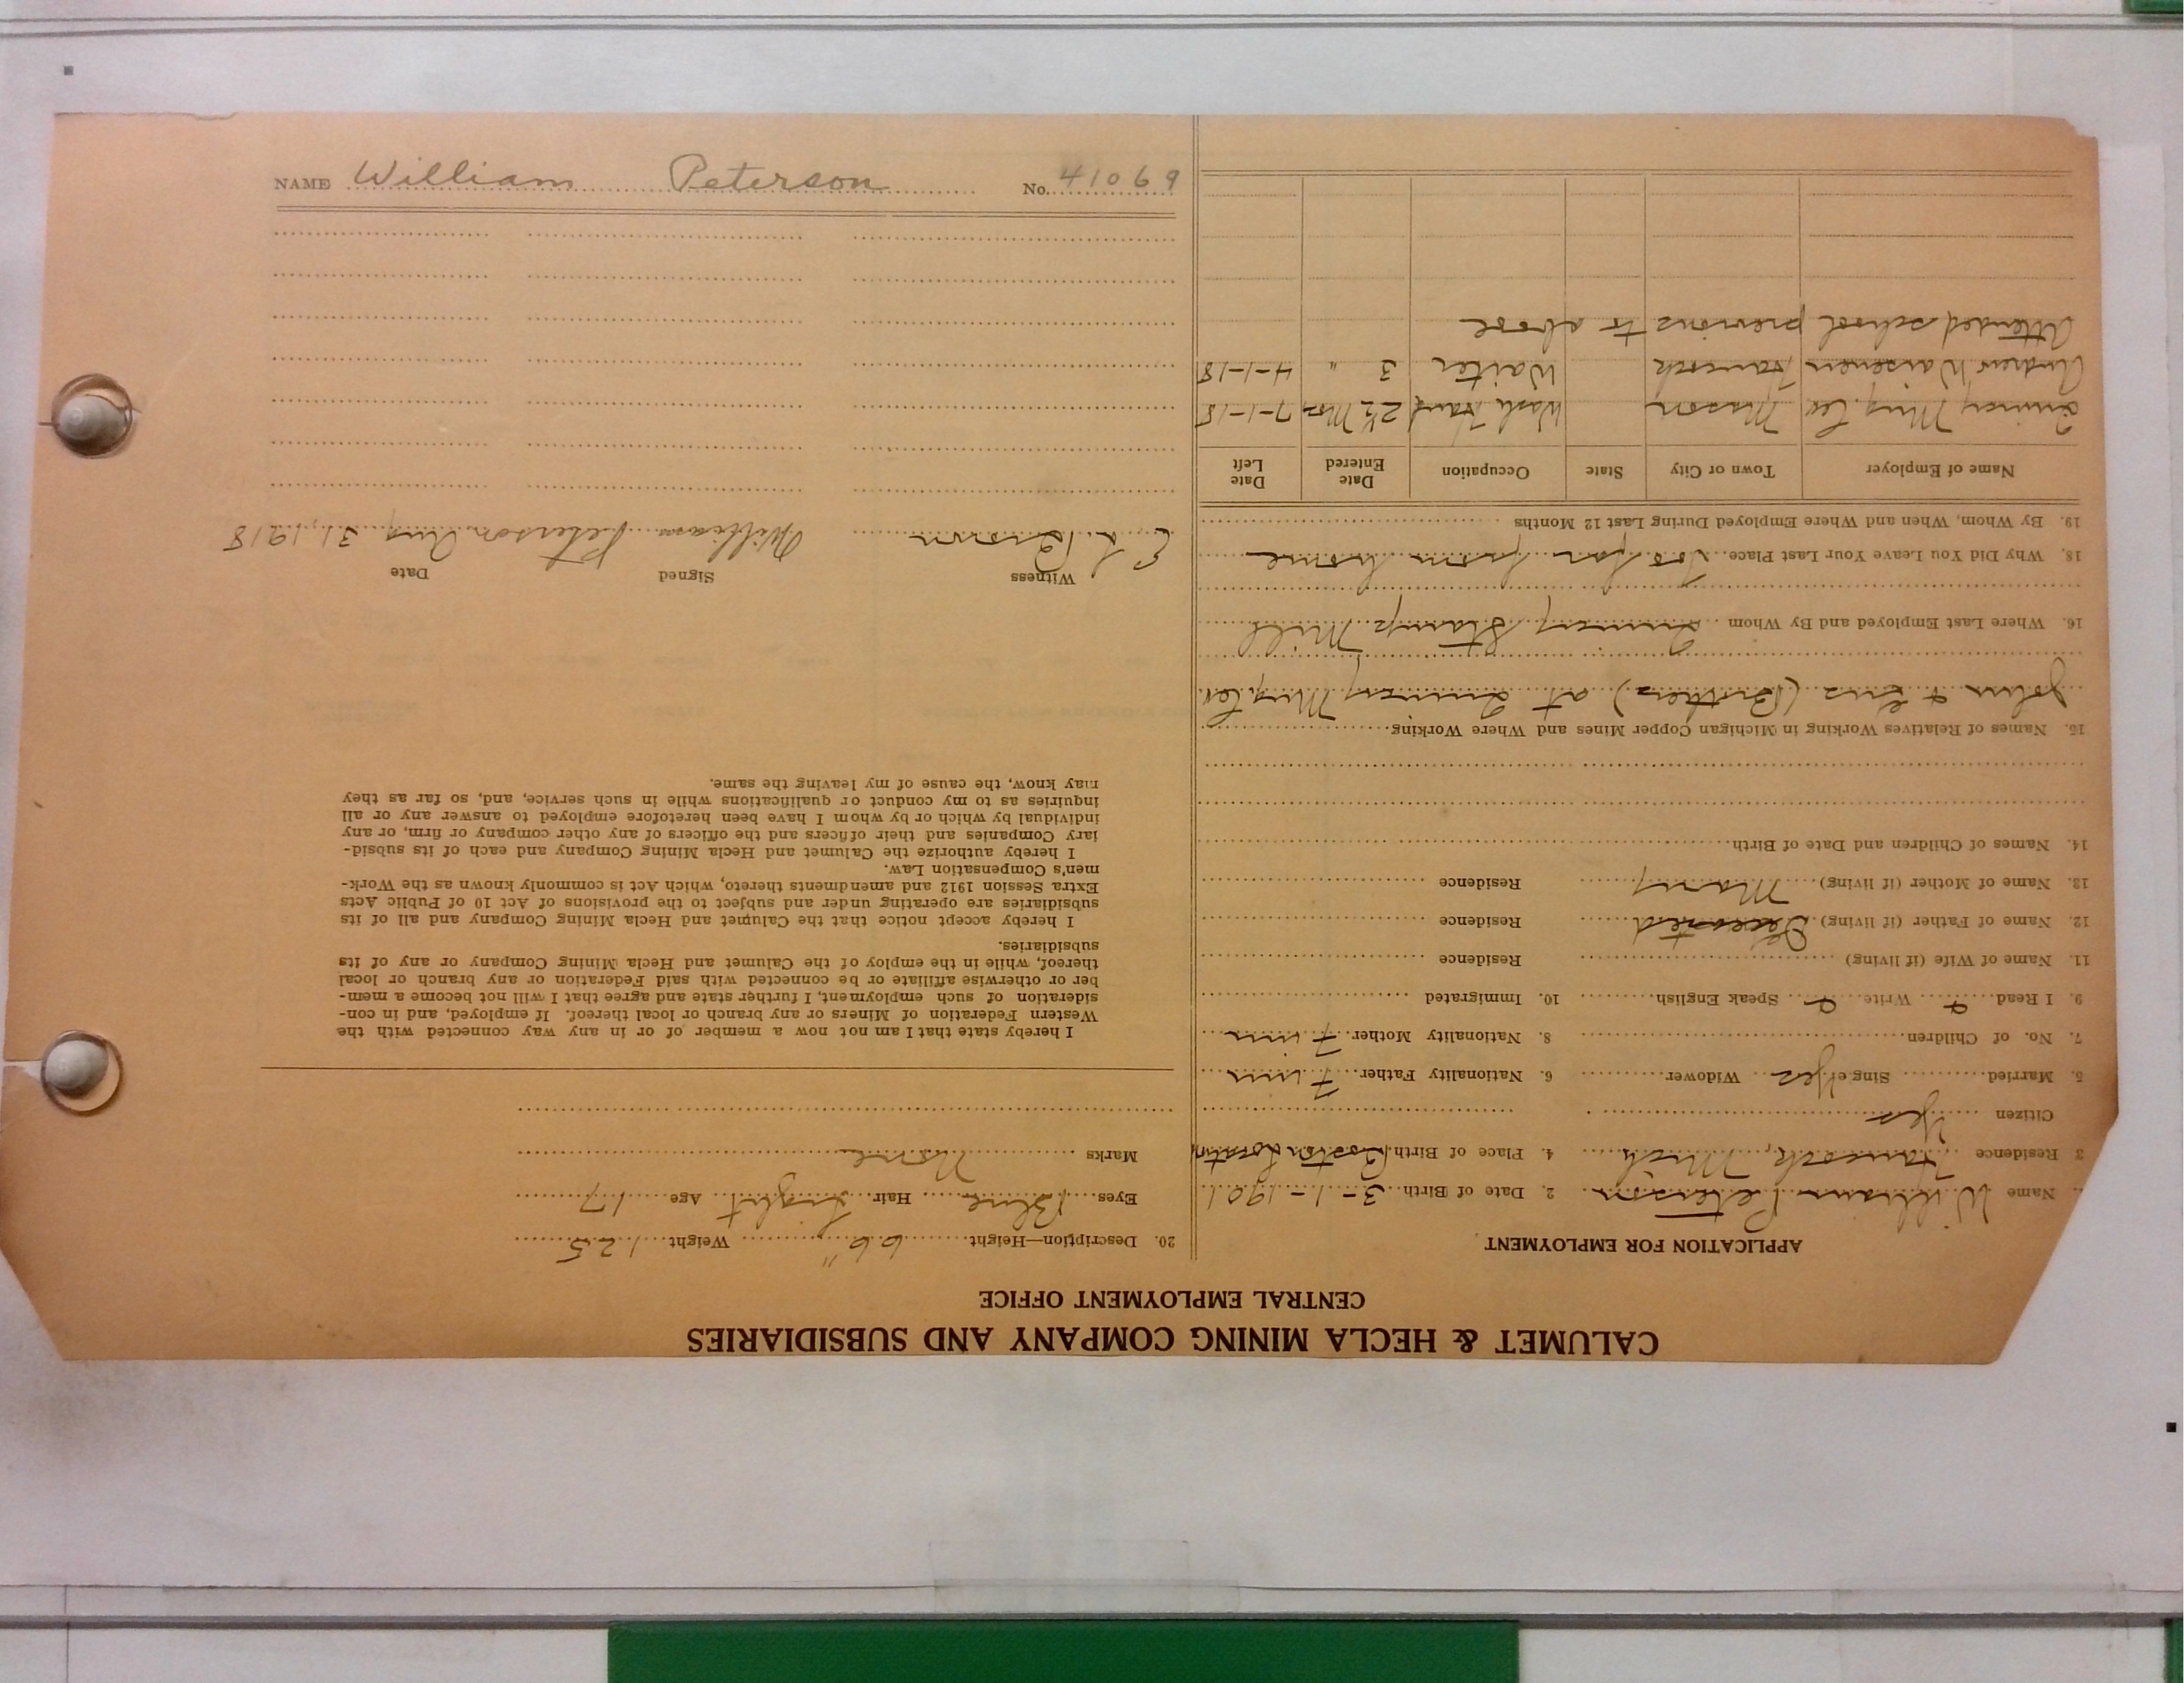 CALUMET & HECLA MINING COMPANY AND SUBSIDIARIES
CENTRAL EMPLOYMENT OFFICE
APPLICATION FOR EMPLOYMENT
Name William Peterson 2. Date of Birth 3-1-1901
3 Residence Hancock, Mich 4. Place of Birth Boston Location
Citizen Yes
5. Married Single Yes Widower 6. Nationality Father Finn
7. No. of Children 8. Nationality Mother Finn
9. I Read Write Speak English 10. Immigrated
11. Name of Wife (if living) Residence
12. Name of Father (if living) Residence
13. Name of Mother (if living) Mary Residence
14. Names of Children and Date of Birth
15. Names of Relatives Working in Michigan Copper Mines and Where Working
John & (Brothers) at Quincy Mng. Co.
16. Where Last Employed and By Whom Quincy Stamp Mill
18. Why Did You Leave Your Last Place Too far from home
19. By Whom, When and Where Employed During Last 12 Months
Name of Employer Town or City State Occupation Date Entered Date Left
Quincy Mng. Co Mason Wash Hand 2½ Mos 7-1-18
Andrew Waisenen Hancock Waiter 3 " 4-1-18
Attended school previous to above
20. Description—Height 66" Weight 125
Eyes Blue Hair Light Age 17
Marks None
I hereby state that I am not now a member of or in any way connected with the
Western Federation of Miners or any branch or local thereof. If employed, and in con-
sideration of such employment, I further state and agree that I will not become a mem-
ber or otherwise affiliate or be connected with said Federation or any branch or local
thereof, while in the employ of the Calumet and Hecla Mining Company or any of its
subsidiaries.
I hereby accept notice that the Calumet and Hecla Mining Company and all of its
subsidiaries are operating under and subject to the provisions of Act 10 of Public Acts
Extra Session 1912 and amendments thereto, which Act is commonly known as the Work-
men's Compensation Law.
I hereby authorize the Calumet and Hecla Mining Company and each of its subsid-
iary Companies and their officers and the officers of any other company or firm, or any
individual by which or by whom I have been heretofore employed to answer any or all
inquiries as to my conduct or qualifications while in such service, and, so far as they
may know, the cause of my leaving the same.
Witness Signed Date
William Peterson Aug 31, 1918
NAME William Peterson No. 41069